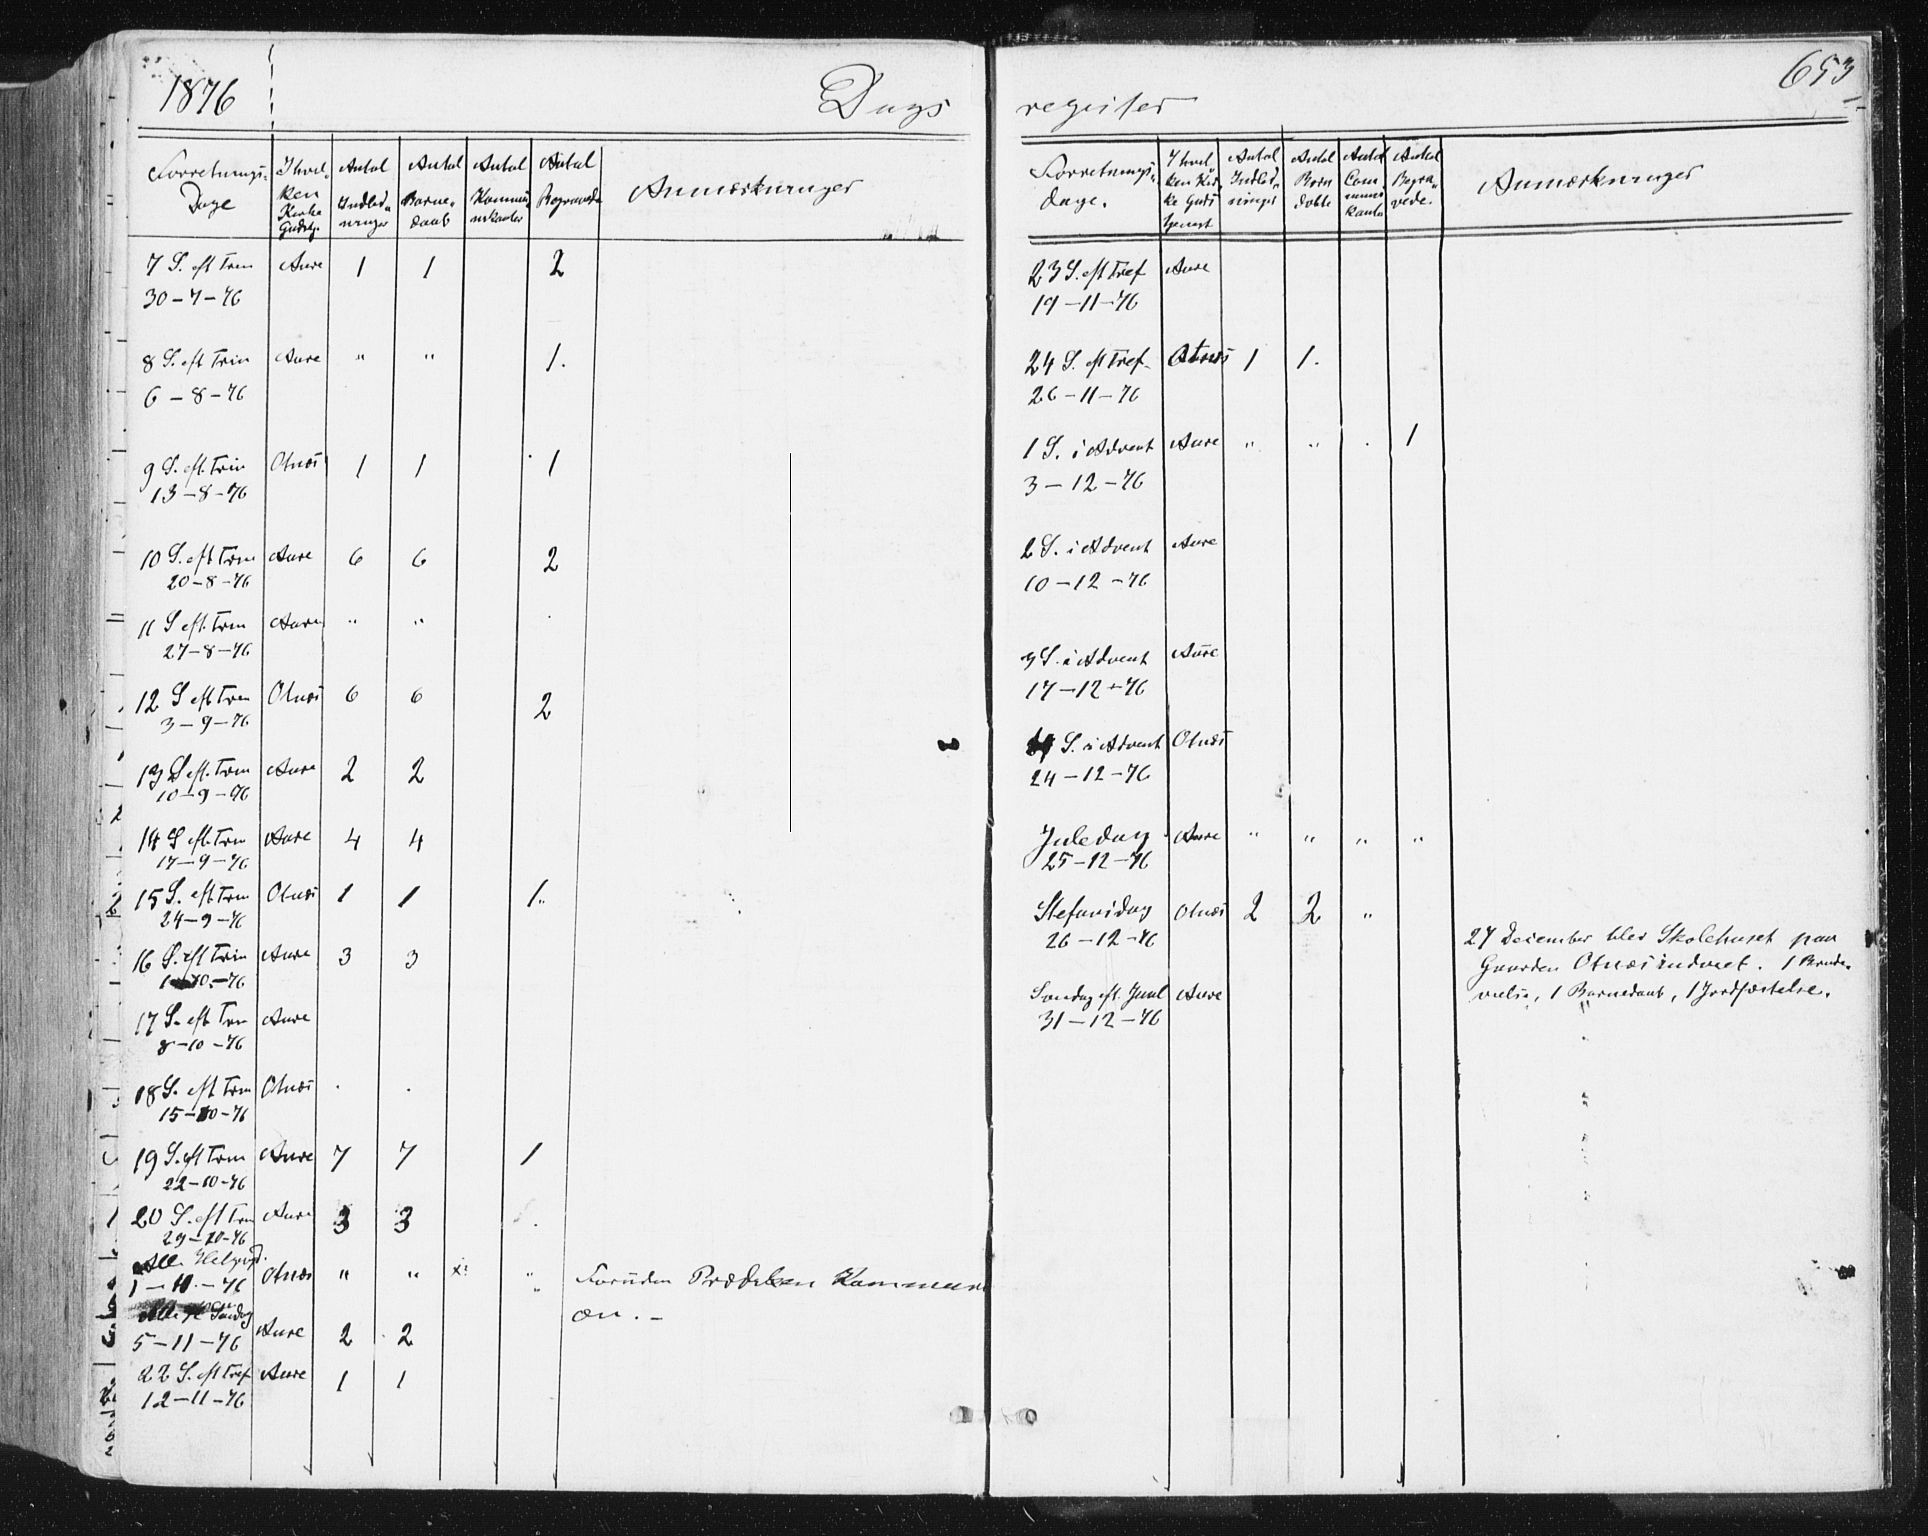 1876 Dags
Forretnings- Dage | Ihvil- ken Kirke Gudstj. | Antal Indled- ninger | Antal Barne- daab | Antal Kommu- nikanter | Antal Begravede | Anmærkninger
7 S. eft Trin Aure 1 1 2
30-7-76
8 S. eft Trin Aure " " 1.
6-8-76
9 S. eft. Trin Otnæs 1 1 1
13-8-76
10 S. eft Trin Aure 6 6 2
20-8-76
11 S eft. Trin Aure " "
27-8-76
12 S eft Trin Otnæs 6 6 2
3-9-76
13 S eft. Trin Aure 2 2
10-9-76
14 S eft. Trin Aure 4 4
17-9-76
15 S. eft Trin Otnæs 1 1 1.
24-9-76
16 S. eft Trin Aure 3 3
1-10-76
17 S. eft Trin Aure
8-10-76
18 S. eft Trin Otnæs . .
15-10-76
19 S. eft Trin Aure 7 7 1
22-10-76
20 S. eft Trin Aure 3 3 .
29-10-76
Alle Helgensd.
1-11-76 Otnæs " " x " Foruden Prædiken Kommuni
on.-
Søndag
5-11-76 Aure 2 2
22 S. eft Tref Aure 1 1
12-11-76
register 653
Forretnings- dage. | Ihvil ken Kir ke Guds tjenest | Antal Indled- ninger | Antal Børn døbte | Antal Com- muni kanter | Antal Begra- vede. | Anmærkninger
23 S. eft Tref Aure
19-11-76
24 S. eft Tref Otnæs 1 1.
26-11-76
1 S. i Advent Aure " " . 1
3-12-76
2 S. i Advent Aure
10-12-76
3 S. i Advent Aure
17-12-76
4 S. i Advent Otnæs
24-12-76
Juledag Aure " " " "
25-12-76
Stefansdag Otnæs 2 2 "
26-12-76
27 December blev Skolehuset paa
Gaarden Otnæs indviet. 1 Brude-
vielse, 1 Barnedaab, 1 Jordfæstelse.
Søndag eft. Juul Aure
31-12-76